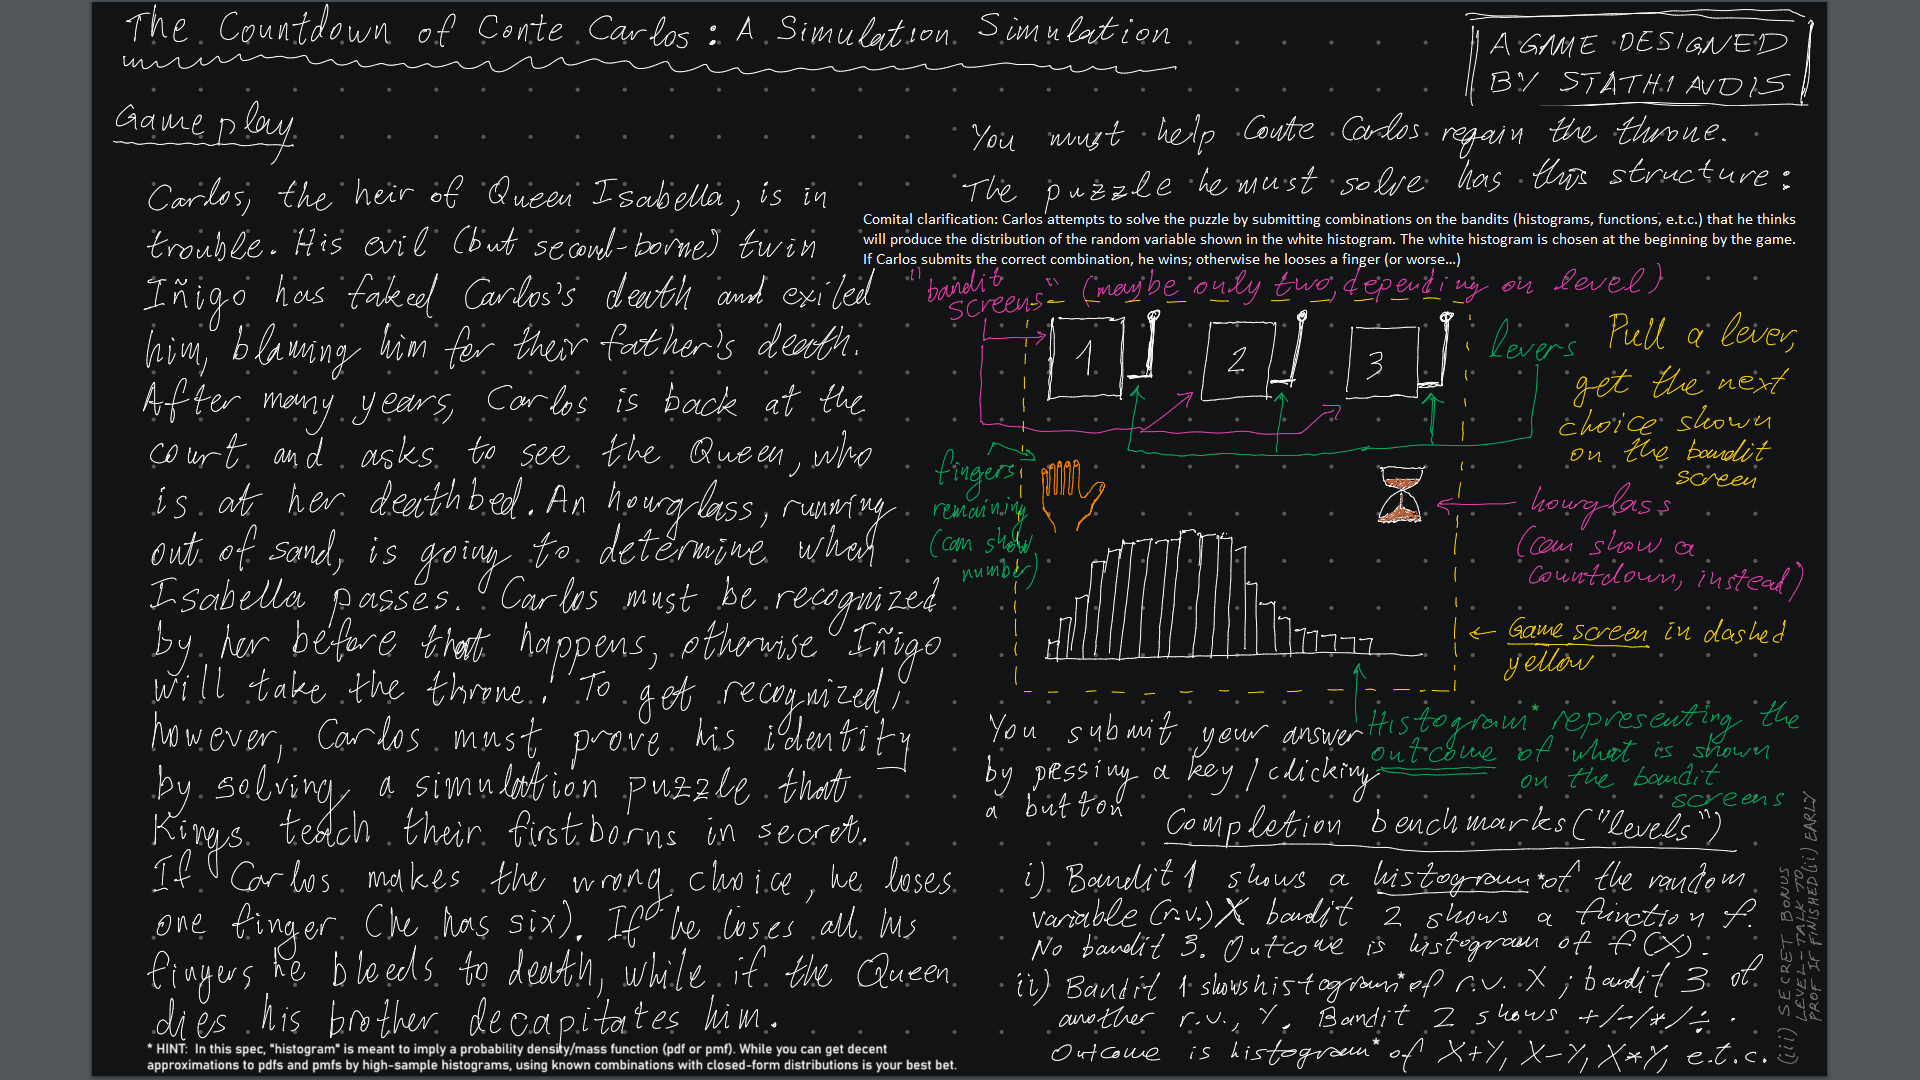 The Countdown of Conte Carlos: A Simulation Simulation
A GAME DESIGNED
BY STATHIAUDIS
Gameplay
Carlos, the heir of Queen Isabella, is in
trouble. His evil (but second-borne) twin
Iñigo has faked Carlos's death and exiled
him, blaming him for their father's death.
After many years, Carlos is back at the
court and asks to see the Queen, who
is at her deathbed. An hourglass, running
out of sand, is going to determine when
Isabella passes. Carlos must be recognized
by her before that happens, otherwise Iñigo
will take the throne. To get recognized,
however, Carlos must prove his identity
by solving a simulation puzzle that
Kings teach their firstborns in secret.
If Carlos makes the wrong choice, he loses
one finger (he has six). If he loses all his
fingers he bleeds to death, while if the Queen
dies his brother decapitates him.
* HINT: In this spec, "histogram" is meant to imply a probability density/mass function (pdf or pmf). While you can get decent
approximations to pdfs and pmfs by high-sample histograms, using known combinations with closed-form distributions is your best bet.
You must help Conte Carlos regain the throne.
The puzzle he must solve has this structure:
Comital clarification: Carlos attempts to solve the puzzle by submitting combinations on the bandits (histograms, functions, e.t.c.) that he thinks
will produce the distribution of the random variable shown in the white histogram. The white histogram is chosen at the beginning by the game.
If Carlos submits the correct combination, he wins; otherwise he looses a finger (or worse...)
"bandit
screens" (maybe only two, depending on level)
1
2
3
levers
Pull a lever,
get the next
choice shown
on the bandit
screen
fingers
remaining
(can show
number)
hourglass
(can show a
countdown, instead)
Game screen in dashed
yellow
Histogram* representing the
outcome of what is shown
on the bandit
screens
You submit your answer
by pressing a key/clicking
a button
Completion benchmarks ("levels")
i) Bandit 1 shows a histogram* of the random
variable (r.v.) X bandit 2 shows a function f.
No bandit 3. Outcome is histogram of f(X).
ii) Bandit 1 shows histogram* of r.v. X; bandit 3 of
another r.v., Y. Bandit 2 shows +/-/*/÷.
Outcome is histogram* of X+Y, X-Y, X*Y, e.t.c.
(iii) SECRET BONUS
LEVEL - TALK TO
PROF IF FINISHED (ii) EARLY